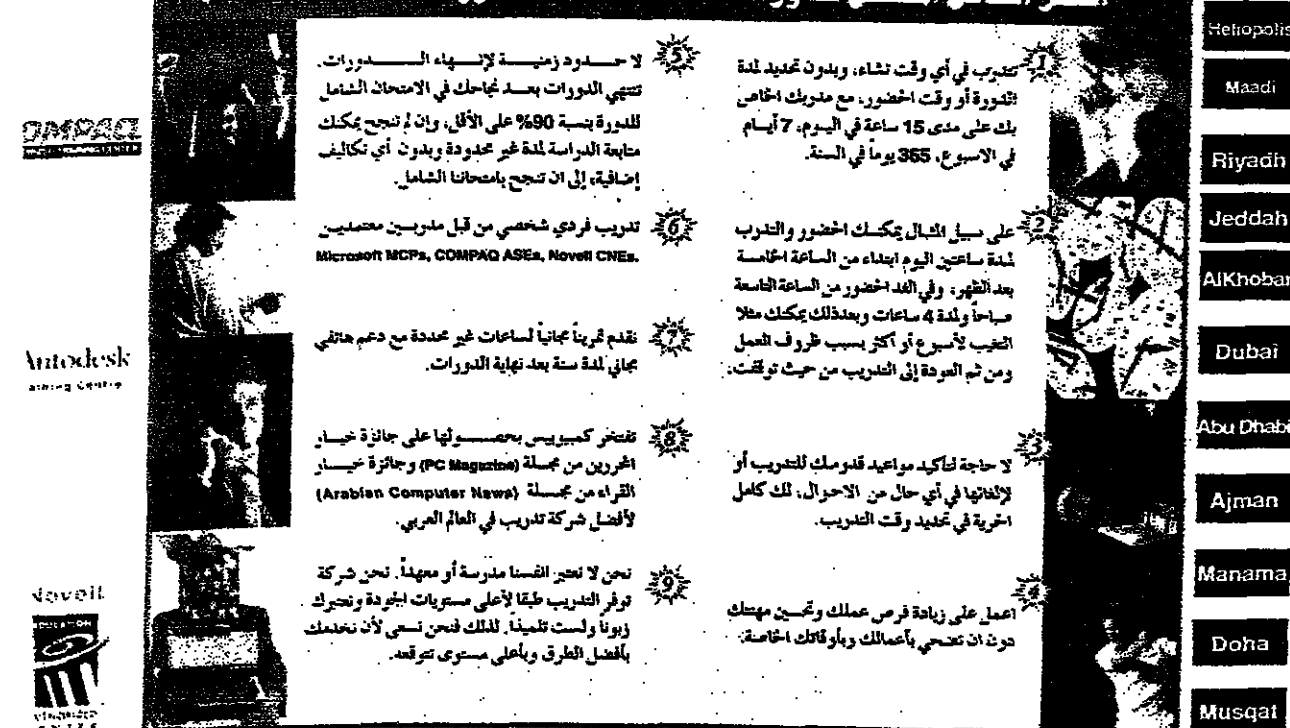 تتدرب في أي وقت تشاء، وبدون تحديد لمدة
الدورة أو وقت الحضور، مع مدربك الخاص
بك على مدى 15 ساعة في اليوم، 7 أيام
في الاسبوع، 365 يوماً في السنة.
2
على سبيل المثال يمكنك الحضور والتدرب
لمدة ساعتين اليوم ابتداء من الساعة الخامسة
بعد الظهر، وفي الغد الحضور من الساعة التاسعة
صباحاً ولمدة 4 ساعات وبعدذلك يمكنك مثلا
التغيب لأسبوع أو أكثر بسبب ظروف العمل
ومن ثم العودة إلى التدريب من حيث توقفت.
3
لا حاجة لتأكيد مواعيد قدومك للتدريب أو
لإلغائها في أي حال من الاحوال، لك كامل
الحرية في تحديد وقت التدريب.
اعمل على زيادة فرص عملك وتحسين مهنتك
دون ان تضحي بأعمالك وبأوقاتك الخاصة.
5
لا حدود زمنية لإنهاء الدورات.
تنتهي الدورات بعد نجاحك في الامتحان الشامل
للدورة بنسبة 90% على الأقل، وإن لم تنجح يمكنك
متابعة الدراسة لمدة غير محدودة وبدون أي تكاليف
إضافية، إلى ان تنجح بامتحاننا الشامل.
6
تدريب فردي شخصي من قبل مدربين معتمدين
Microsoft MCPs, COMPAQ ASEs, Novell CNEs.
7
نقدم تمريناً مجانياً لساعات غير محددة مع دعم هاتفي
مجاني لمدة سنة بعد نهاية الدورات.
8
تفتخر كمبيوبيس بحصولها على جائزة خيار
المحررين من مجلة (PC Magazine) وجائزة خيار
القراء من مجلة (Arabian Computer News)
لأفضل شركة تدريب في العالم العربي.
9
نحن لا نعتبر انفسنا مدرسة أو معهداً. نحن شركة
توفر التدريب طبقا لأعلى مستويات الجودة ونعتبرك
زبوناً ولست تلميذاً. لذلك فنحن نسعى لأن نخدمك
بأفضل الطرق وبأعلى مستوى تتوقعه.
Heliopolis
Maadi
Riyadh
Jeddah
AlKhobar
Dubai
Abu Dhabi
Ajman
Manama
Doha
Musqat
Autodesk
Novell